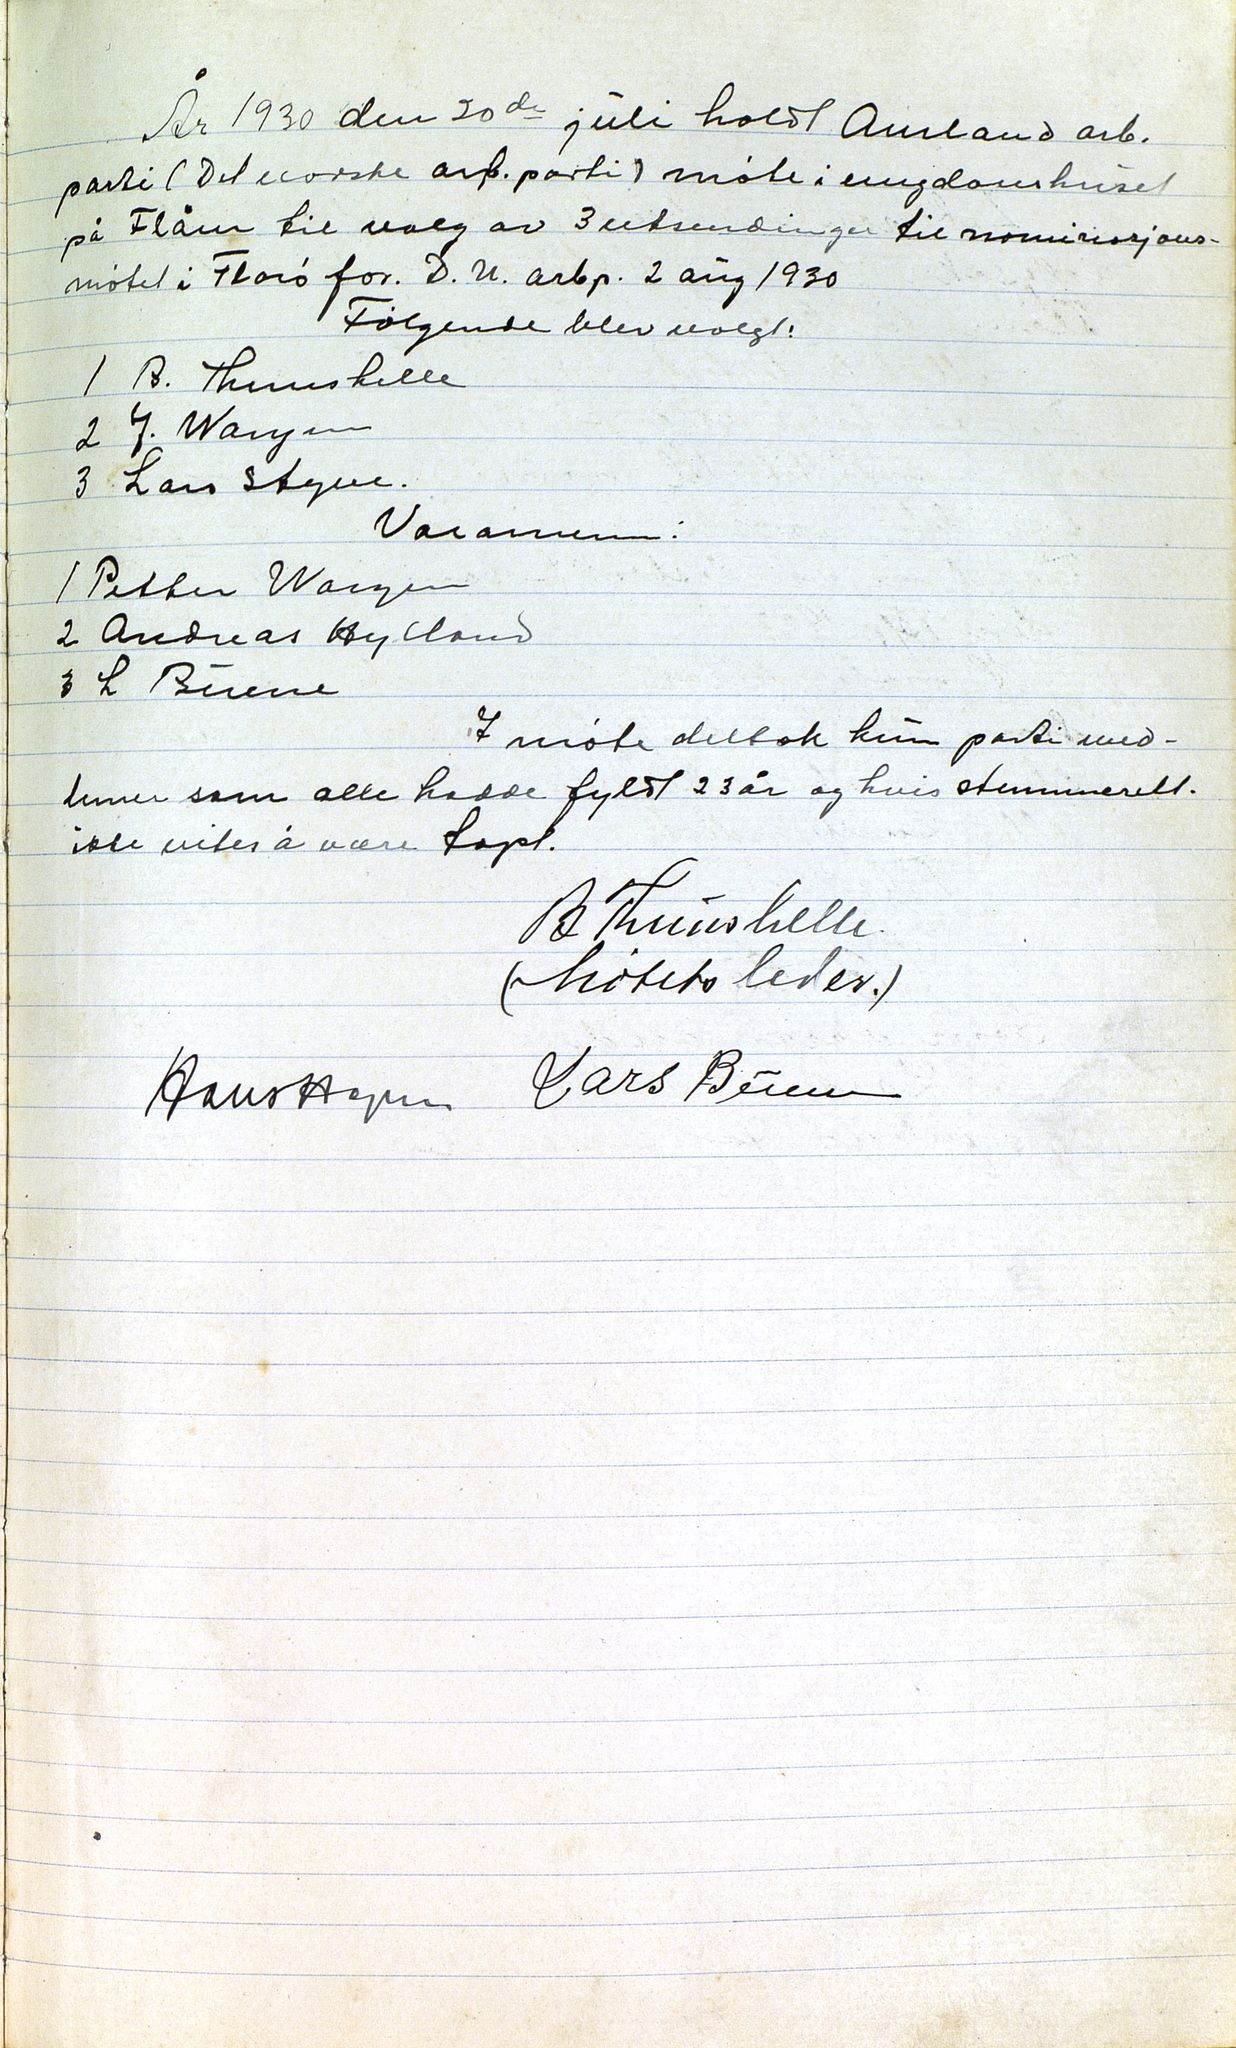 År 1930 den 20de juli holdt Aurland arb.
parti (Det norske arb. parti) møte i ungdomshuset
på Flåm til valg av 3 utsendinger til nominasjons-
møtet i Florø for. D. N. arbp. 2 aug 1930
Følgende blev valgt:
1 B. Thunshelle
2 J. Wangen
3 Lars Styve.
Varamenn:
1 Petter Wangen
2 Andreas Hylland
3 L Búene
I møte deltok kun parti med-
lemer som alle hadde fyldt 23 år og hvis stemmerett.
ikke vites å være tapt.
B Thunshelle.
(Møtets leder.)
Hans Lars Búene